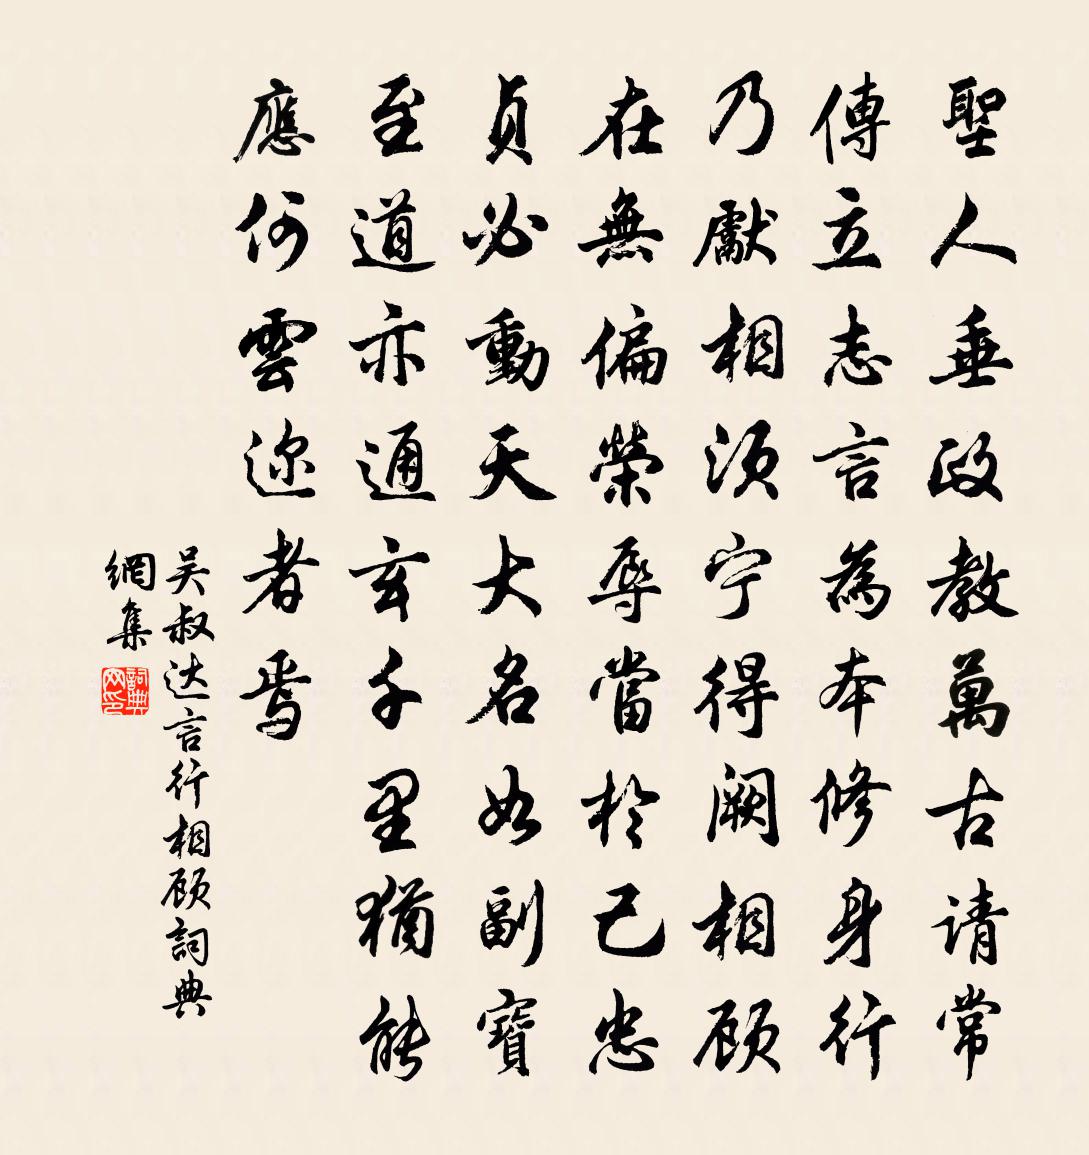 聖人垂政教萬古请常
傳立志言為本修身行
乃獻相须宁得阙相顾
在無偏榮辱當於己忠
貞必動天大名如副寶
至道亦通玄千里猶能
應何雲迩者焉
吴叔达言行相顾詞典
網集
詞典
网印